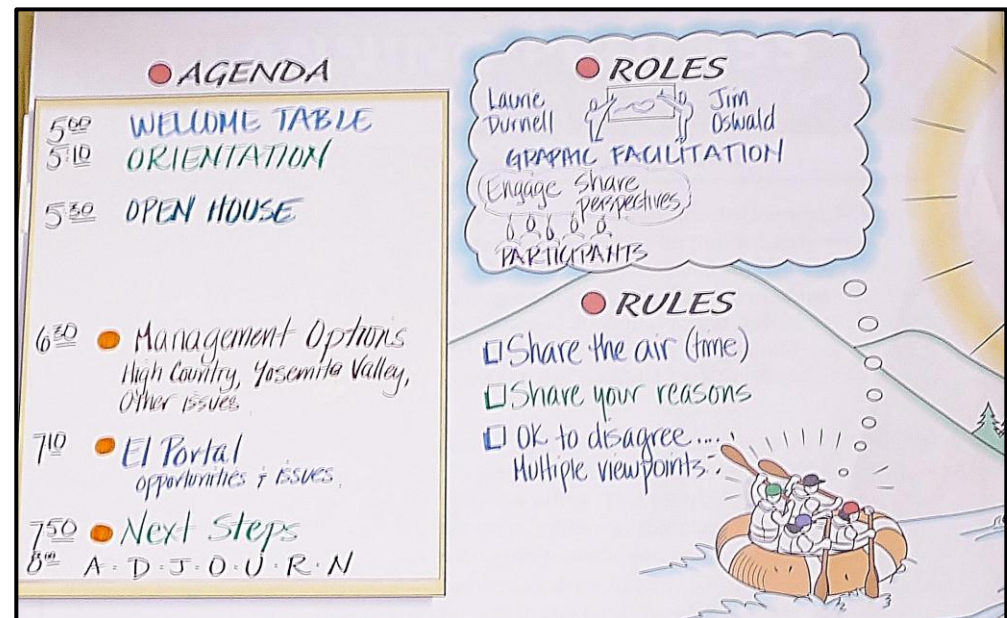 AGENDA
5:00 WELCOME TABLE
5:10 ORIENTATION
5:30 OPEN HOUSE
6:30 Management Options
High Country, Yosemite Valley,
Other issues
7:10 El Portal
opportunities & issues
7:50 Next Steps
8:00 A·D·J·O·U·R·N
ROLES
Laurie Durnell
Jim Oswald
GRAPHIC FACILITATION
Engage Share
perspectives
PARTICIPANTS
RULES
Share the air (time)
Share your reasons
OK to disagree....
Multiple viewpoints